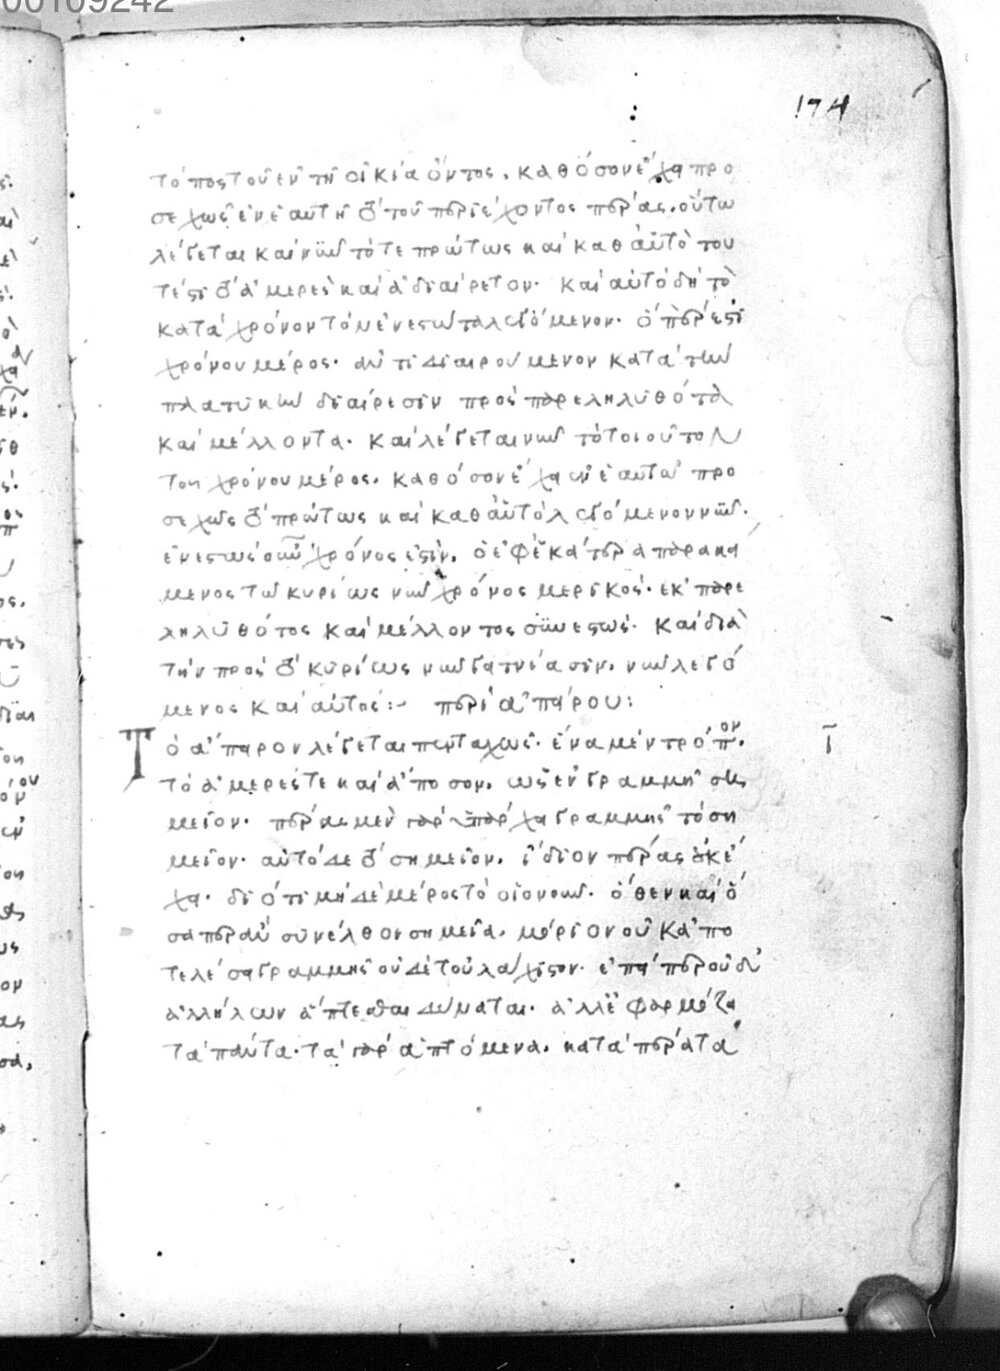 00109242
174
τόπος τοῦ ἐν τῆ οἰκία ὄντος. καθόσον ἔχει προ
σεχῶς ἐν ἑαυτῆ τὸ τοῦ περιέχοντος πέρας. οὕτω
λέγεται καὶ νῦν τότε πρώτως καὶ καθ αὑτὸ του
τέστι τὸ ἀμερὲς καὶ ἀδιαίρετον. καὶ αὐτὸ δὴ τὸ
κατὰ χρόνον τὸν ἐνεστῶτα λεγόμενον. ὅπερ ἐστὶ
χρόνου μέρος. ἀντιδιαιρούμενον κατὰ τὴν
πλατυκὴν διαίρεσιν πρὸς παρεληλυθότα
καὶ μέλλοντα. καὶ λέγεται νῦν τὸ τοιοῦτον
του χρόνου μέρος. καθόσον ἔχει ἐν ἑαυτῶ προ
σεχῶς τὸ πρώτως καὶ καθ αὑτὸ λεγόμενον νῦν.
ἐνεστὼς οὖν χρόνος ἐστὶν. ὁ ἐφ ἑκάτερα παρακεί
μενος τῶ κυρίως νῦν χρόνος μερικὸς. ἐκ παρε
ληλυθότος καὶ μέλλοντος συνεστώς. καὶ διὰ
τὴν πρὸς τὸ κυρίως νῦν γειτνίασιν. νῦν λεγό
μενος καὶ αὐτός:- περὶ ἀπείρου:
Τὸ ἄπειρον λέγεται πενταχῶς. ἕνα μὲν τρόπον.
τὸ ἀμερές τε καὶ ἄποσον. ὡς ἐν γραμμῆ ση
μεῖον. πέρας μὲν γὰρ παρέχει γραμμῆς τὸ ση
μεῖον. αὐτὸ δὲ τὸ σημεῖον. ἴδιον πέρας οὐκ ἔ
χει. διότι μὴ δὲ μέρος τὸ οἱονοῦν. ὅθεν καὶ ὅ
σαπερ ἂν συνέλθον σημεῖα. μόριον οὐκ ἀπο
τελέσει γραμμῆς οὐδὲ τοὐλάχιστον. ἐπείπερ οὐδ
ἀλλήλων ἅπτεσθαι δύναται. ἀλλ ἐφαρμόζει
τὰ πάντα. τὰ γὰρ ἁπτόμενα. κατὰ πέρατα